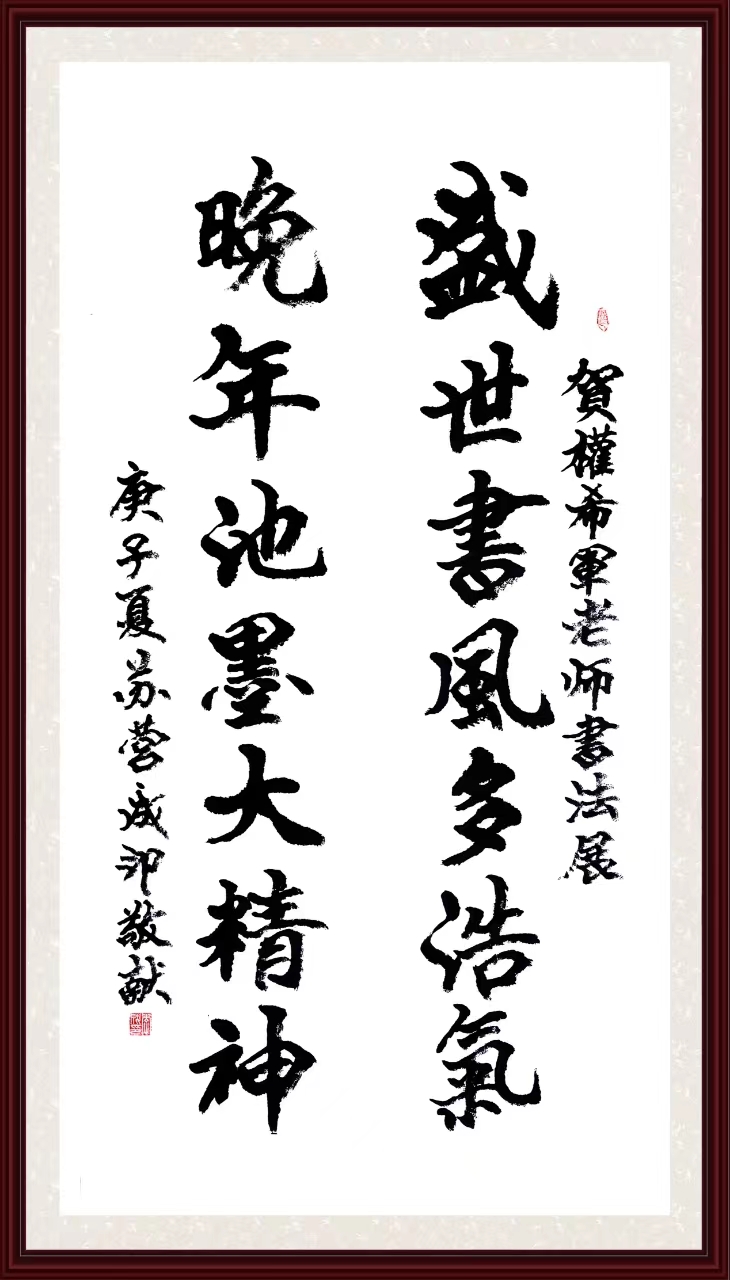 賀權希軍老师書法展
盛世書風多浩氣
晚年池墨大精神
庚子夏苏营成印敬献